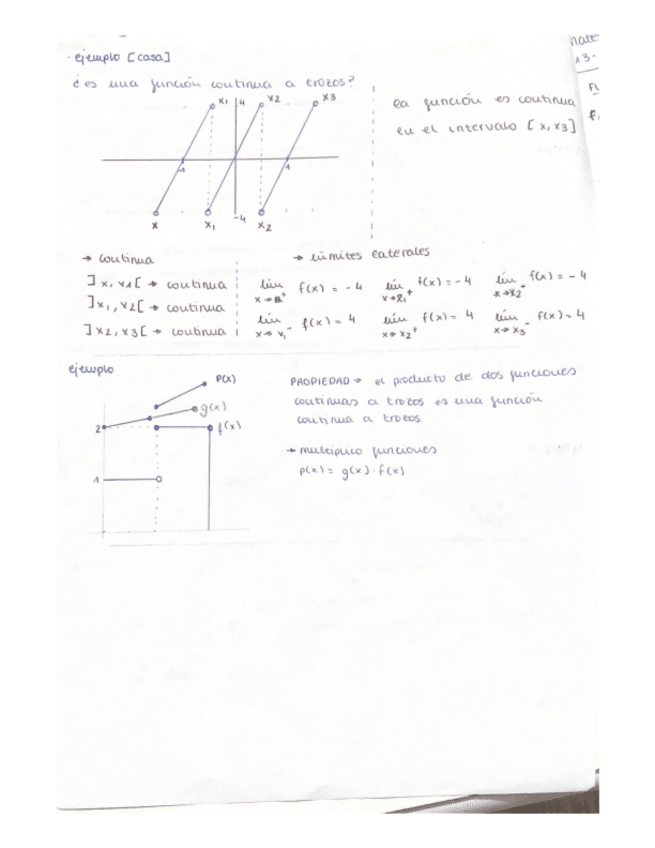 · ejemplo [casa]
¿es una función continua a trozos?
x1 4 x2 x3
-1 1
-4
x x1 x2
la función es continua
en el intervalo [x, x3]
→ continua
]x, x1[ → continua
]x1, x2[ → continua
]x2, x3[ → continua
→ límites laterales
lím f(x) = -4 lím f(x) = -4 lím f(x) = -4
x→x2-
lím f(x) = 4 lím f(x) = 4 lím f(x) = 4
x→x1- x→x2+ x→x3-
ejemplo
p(x)
g(x)
2 f(x)
1
PROPIEDAD → el producto de dos funciones
continuas a trozos es una función
continua a trozos.
→ multiplico funciones
p(x) = g(x) · f(x)